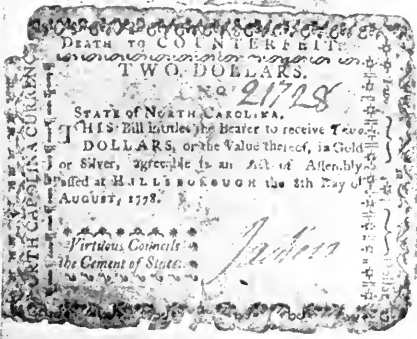 DEATH TO COUNTERFEIT
TWO DOLLARS.
No 21728
STATE of NORTH CAROLINA.
THIS Bill Entitles the Bearer to receive Two
DOLLARS, or the Value thereof, in Gold
or Silver, agreeable to an Act of Assembly
passed at HILLSBOROUGH the 8th Day of
AUGUST, 1778.
Virtuous Councils
the Cement of States.
NORTH CAROLINA CURRENCY